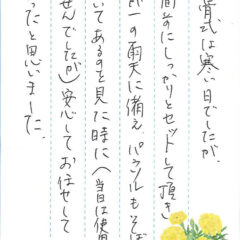 骨式は寒い日でしたが、
前にしっかりとセットして頂き
が一の雨天に備え、パラソルもそば
いてあるのを見た時に（当日は使用
せんでしたが）安心してお任せして
ったと思いました。